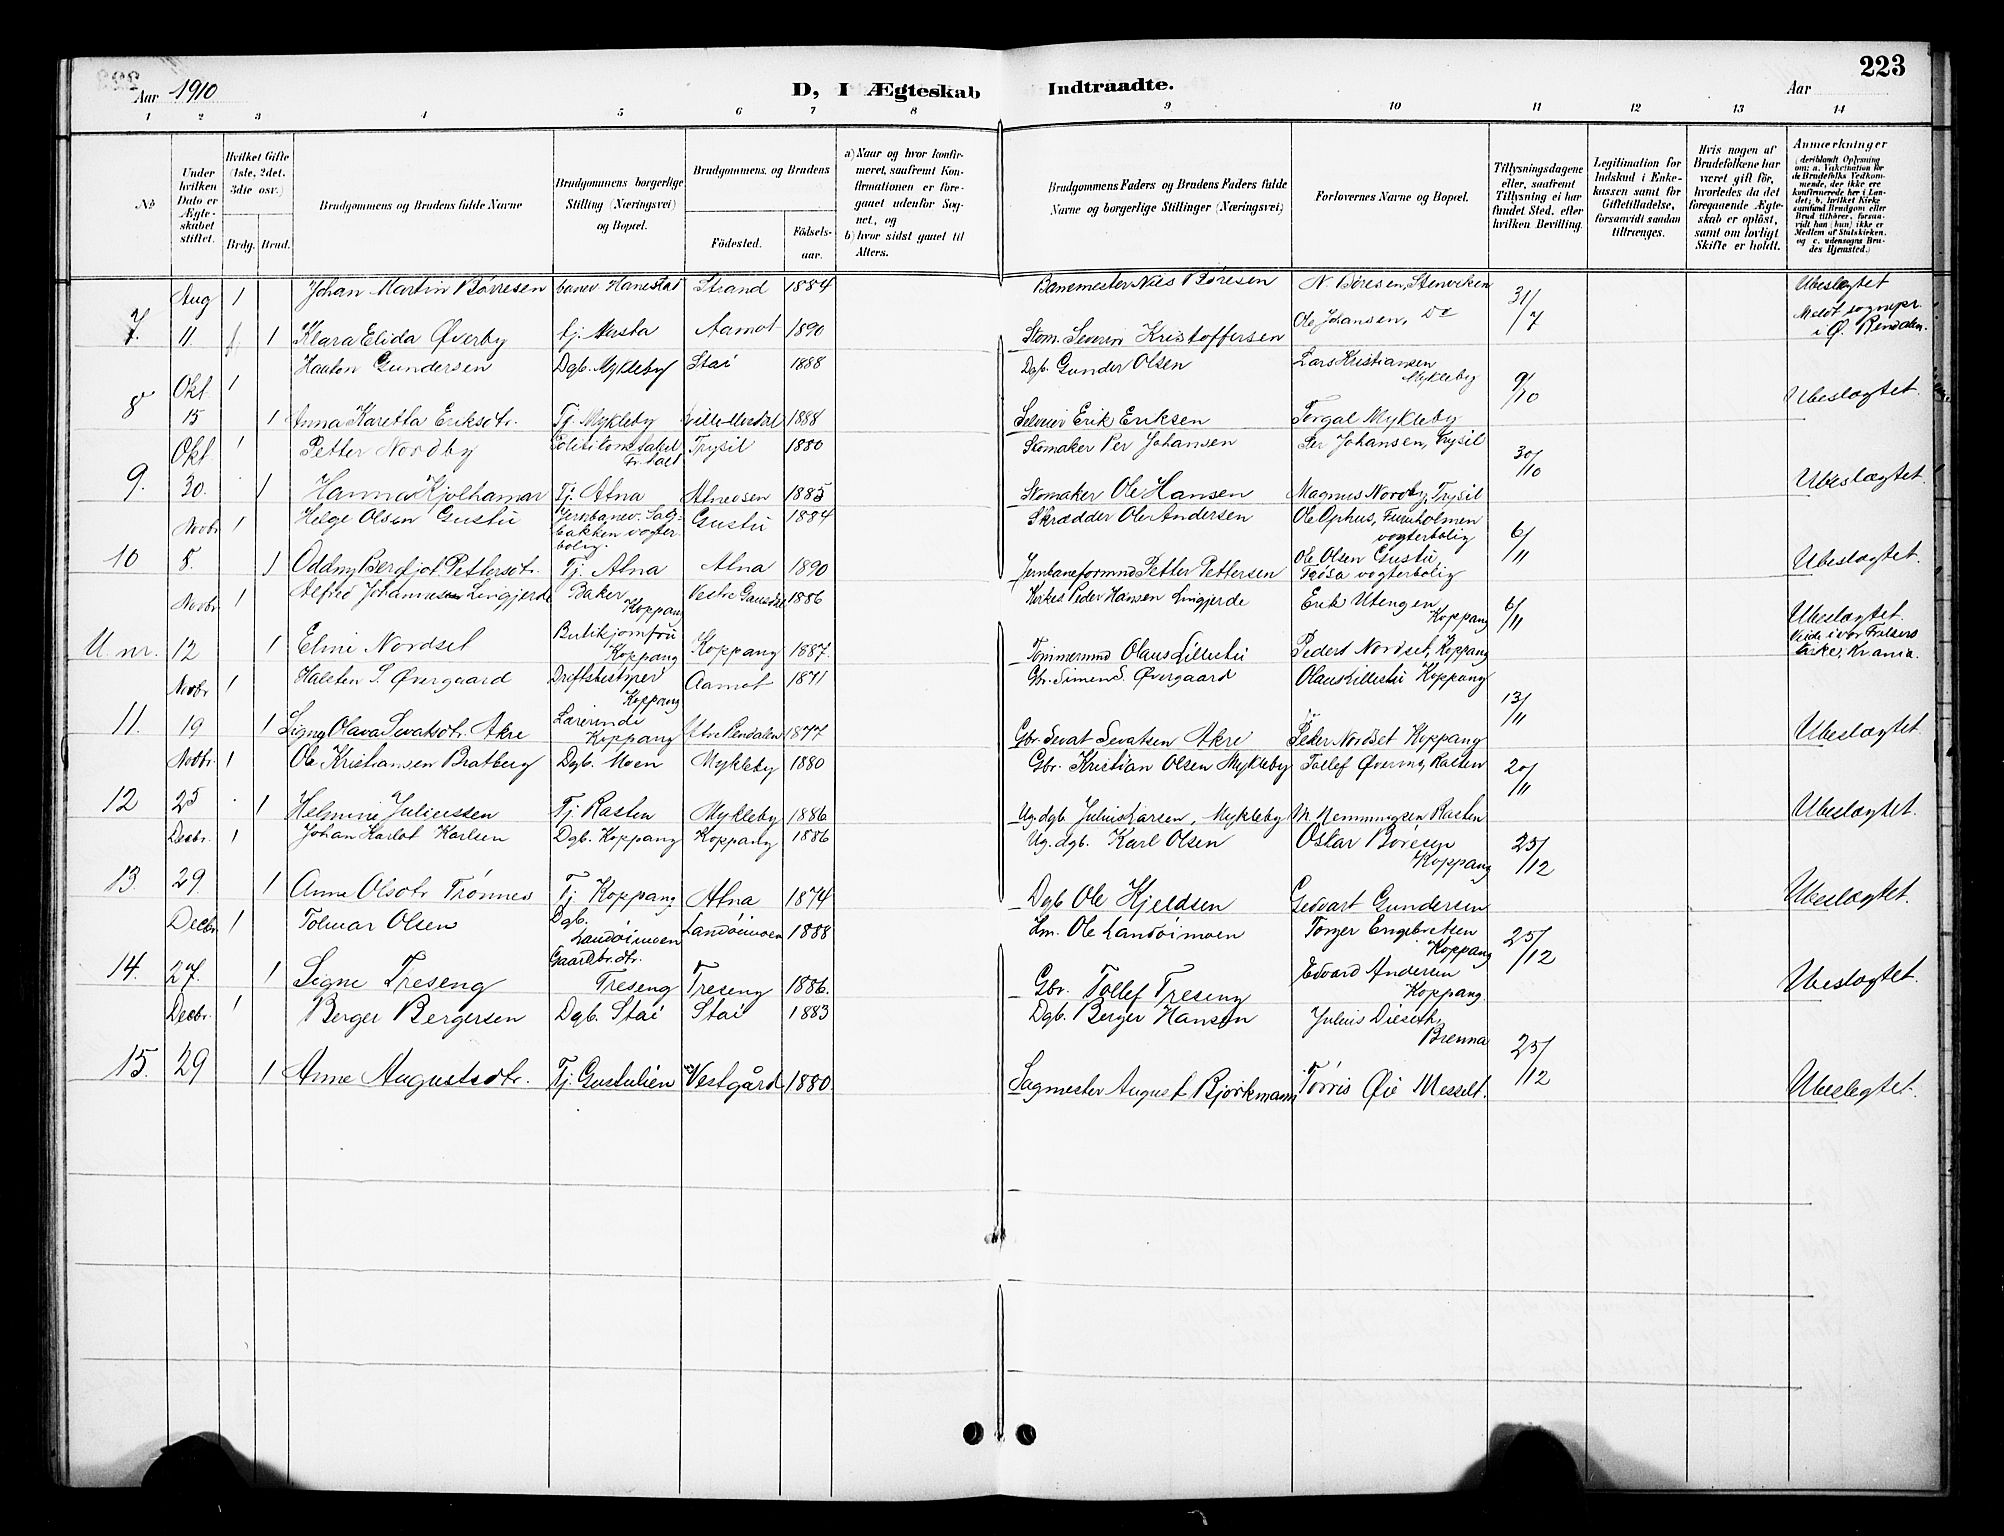 Aar 1910
D, I Ægteskab Indtraadte.
Aar
223
1 2 3 4 5 6 7 8 9 10 11 12 13 14
No
Under hvilken Dato er Ægteskabet stiftet.
Hvilket Gifte (1ste, 2det, 3die osv.)
Brdg. Brud.
Brudgommens og Brudens fulde Navne
Brudgommens borgerlige Stilling (Næringsvei) og Bopæl.
Brudgommens, og Brudens
Fødested.
Fødselsaar.
a) Naar og hvor konfirmeret, saafremt Konfirmationen er foregaaet udenfor Sognet, og
b) hvor sidst gaaet til Alters.
Brudgommens Faders og Brudens Faders fulde Navne og borgerlige Stillinger (Næringsvei)
Forlovernes Navne og Bopæl.
Tillysningsdagene eller, saafremt Tillysning ei har fundet Sted, efter hvilken Bevilling.
Legitimation for Indskud i Enkekassen samt for Giftetilladelse, forsaavidt saadan tiltrænges.
Hvis nogen af Brudefolkene har været gift før, hvorledes da det foregaaende Ægteskab er opløst, samt om lovligt Skifte er holdt.
Anmærkninger
(deriblandt Oplysning om: a. Vakcination for de Brudefolks Vedkommende, der ikke ere konfirmerede her i Landet; b. hvilket Kirkesamfund Brudgom eller Brud tilhører, forsaavidt han (hun) ikke er Medlem af Statskirken, og c. udensogns Brudes Hjemsted.)
7. Aug 1 Johan Martin Børresen banev. Hanestad Strand 1884 Banemester Nils Børesen N. Børesen, Stenviken 31/7 Ubeslægtet
11 1 Klara Elida Øverby tj. Messta Aamot 1890 Stom. Severin Kristoffersen Ole Johansen, Do Meldt sognepr. i Ø. Rendalen.
8 Okt. 1 Hauton Gundersen Dgb. Mykleby Stai 1888 Dgb. Gunder Olsen Lars Kristiansen Mykleby 9/10 Ubeslægtet.
15 1 Anna Karetta Eriksdtr. Tj. Mykleby 1888 Selveier Erik Eriksen Torgal Mykleby
9. Okt. 1 Petter Nordby Trysil 1880 Skomaker Per Johansen Per Johansen, Trysil 30/10 Ubeslægtet.
30. 1 Hanna Kjølhamar Tj. Atna Atneosen 1885 Skomaker Ole Hansen Magnus Nordby, Trysil
10 Novbr 1 Helge Olsen Gustu Jernbanev. Sagbakken vogterbolig. Gustu 1884 Skrædder Ole Andersen Ole Ophus, Furuholmen vogterbolig 6/11 Ubeslægtet.
5. 1 Oddny Bergljot Pettersdtr. Tj. Atna Atna 1890 Jernbaneformnd Petter Pettersen Ole Olsen Gustu, Trøsa vogterbolig
U. nr. Novbr 1 Alfred Johannesen Lingjerde Baker Koppang Vestre Gausdal 1886 Kirkes. Peder Hansen Lingjerde Erik Utengen Koppang 6/11 Ubeslægtet
12 1 Elini Nordset Butikjomfru Koppang Koppang 1887. Tømmermnd Olaus Lillestu Peder Nordset, Koppang Viede i vor Frelsers kirke, Krania.
11. Novbr 1 Halsten S. Øvergaard Driftsbestyrer Koppang Aamot 1871 Gbr. Simen S. Øvergaard Olaus Lillestu Koppang 13/11 Ubeslægtet.
19 1 Signy Olava Sevatsdtr. Akre Lærerinde Koppang Øvre Rendalen 1877 Gbr. Sevat Sevatsen Akre Peder Nordset Koppang
12 Novbr. 1 Ole Kristiansen Bratberg Dgb. Moen Mykleby 1880 Gbr. Kristian Olsen Mykleby Tollef Øvermo, Rasten 20/11 Ubeslægtet.
25 1 Helmine Juliussen Tj. Rasten Mykleby 1886 Ug. dgb. Julius Larsen, Mykleby M. Nemmingsen Rasten
13. Decbr. 1 Johan Karlot Karlsen Dgb. Koppang Koppang 1886 Ug. dgb. Karl Olsen Oskar Børesen Koppang 25/12 Ubeslægtet.
29. 1 Anne Olsdtr Trønnes Tj Koppang Atna 1874 Dgb Ole Kjeldsen Gedvart Gundersen
14. Decbr 1 Tolmar Olsen Dgb. Landoimoen Landoimoen 1888 Hm. Ole Landoimoen Torger Engebretsen Koppang 25/12 Ubeslægtet.
27. 1 Signe Treseng Gaardbr.dtr. Treseng Treseng 1886. Gbr. Tollef Treseng Edvard Andersen Koppang.
15. Decbr. 1 Berger Bergersen Dgb. Stai Stai 1883 Dgb. Berger Hansen Julius Diseth, Brenna 25/12 Ubeslegtet.
29 1 Anne Augustsdtr. Tj. Gustulien Vestgård 1880 Sagmester August Bjørkmann Tørris Øie Messelt.